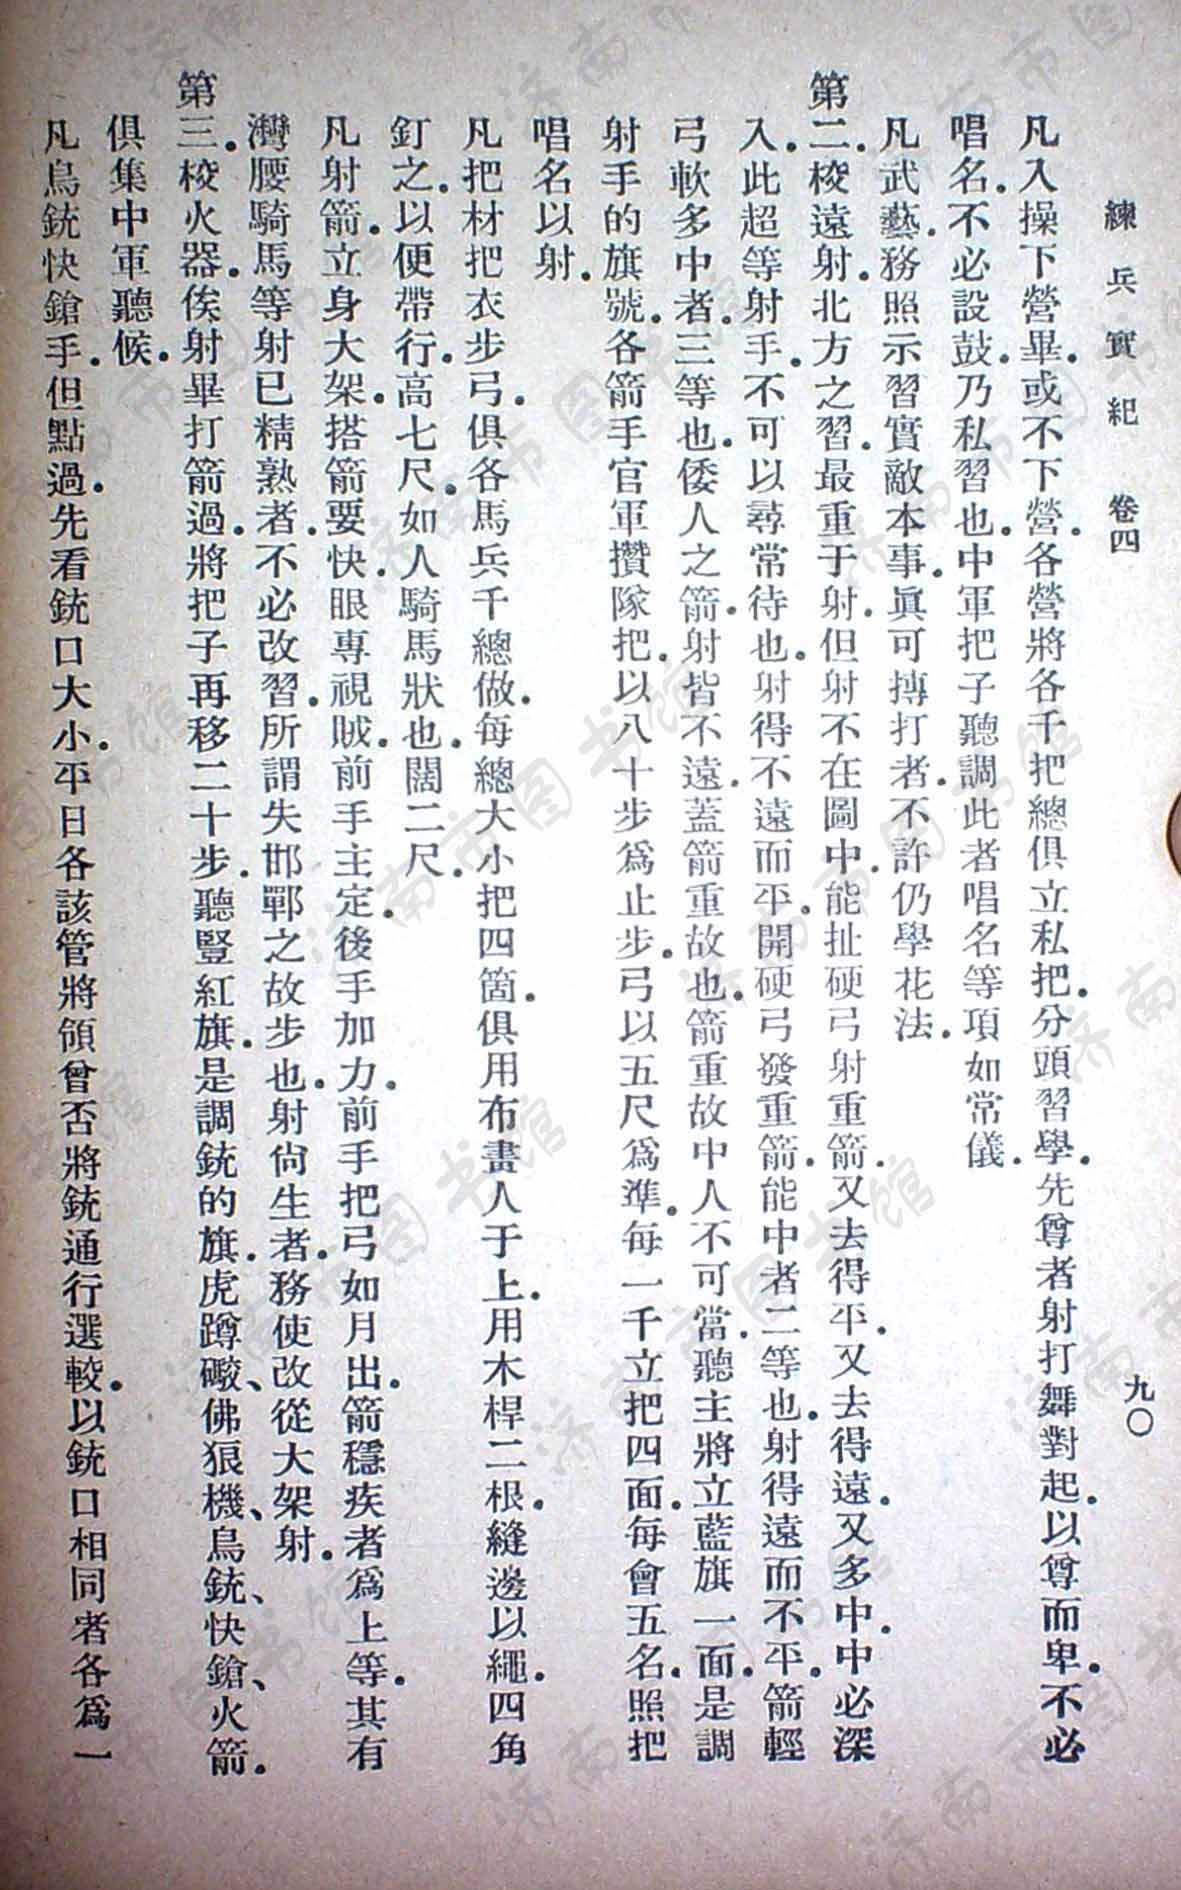 練兵實紀　卷四　九〇
凡入操下營畢.或不下營.各營將各千把總俱立私把.分頭習學.先尊者射打舞對起.以尊而卑.不必
唱名.不必設鼓.乃私習也.中軍把子聽調此者唱名等項如常儀.
凡武藝.務照示習實敵本事.眞可搏打者.不許仍學花法.
第二.梭遠射.北方之習.最重于射.但射不在圖中.能扯硬弓射重箭.又去得平.又去得遠.又多中.中必深
入.此超等射手.不可以尋常待也.射得不遠而平.開硬弓發重箭.能中者二等也.射得遠而不平.箭輕
弓軟多中者.三等也.倭人之箭.射皆不遠.蓋箭重故也.箭重故中人不可當.聽主將立藍旗一面.是調
射手的旗號.各箭手官軍攢隊把.以八十步爲止步.弓以五尺爲準.每一千立把四面.每會五名.照把
唱名以射.
凡把材把衣步弓.俱各馬兵千總做.每總大小把四箇.俱用布畫人于上.用木桿二根.縫邊以繩.四角
釘之.以便帶行.高七尺.如人騎馬狀也.闊二尺.
凡射箭.立身大架.搭箭要快.眼專視賊.前手主定.後手加力.前手把弓如月出.箭穩疾者爲上等.其有
灣腰騎馬等射已精熟者.不必改習.所謂失邯鄲之故步也.射尙生者.務使改從大架射.
第三.梭火器.俟射畢打箭過.將把子再移二十步.聽豎紅旗.是調銃的旗.虎蹲礮、佛狼機、鳥銃、快鎗、火箭.
俱集中軍聽候.
凡鳥銃快鎗手.但點過.先看銃口大小.平日各該管將領曾否將銃通行選較.以銃口相同者各爲一